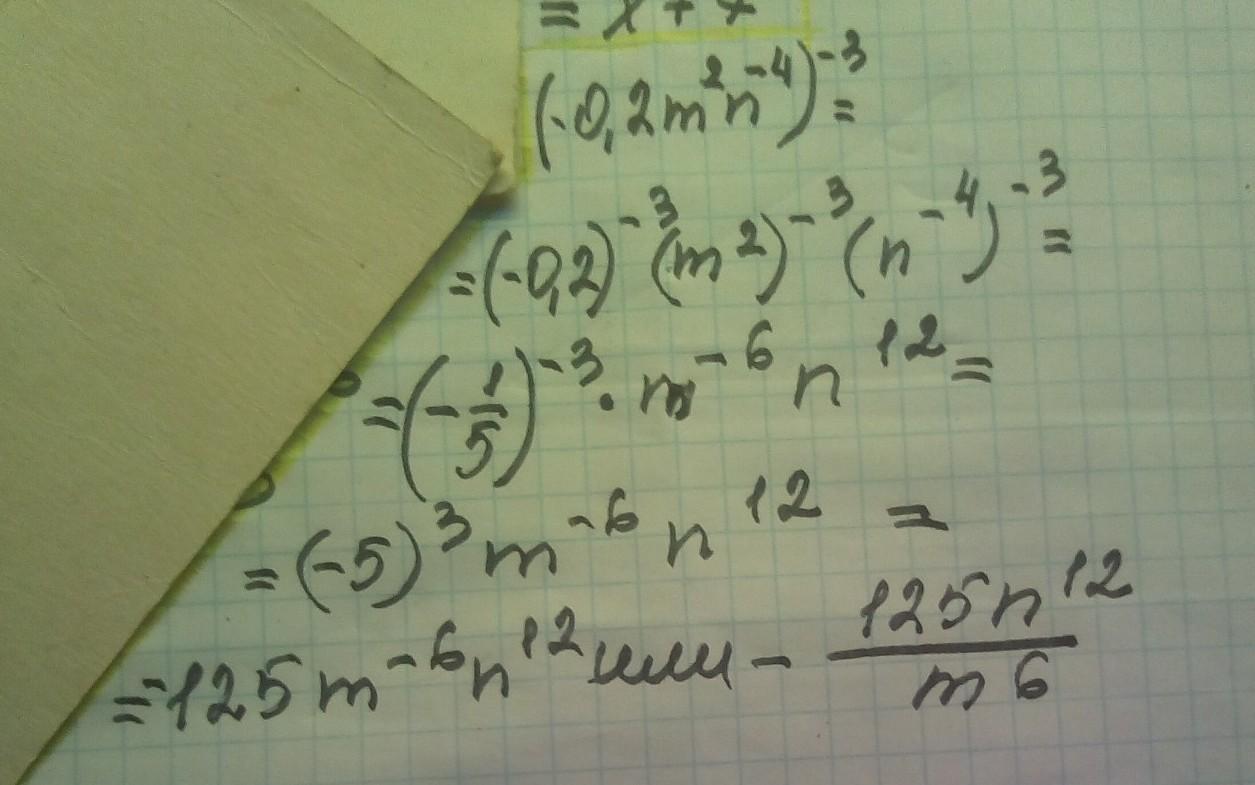 (-0,2m²n⁻⁴)⁻³=
=(-0,2)⁻³(m²)⁻³(n⁻⁴)⁻³=
=(-1/5)⁻³·m⁻⁶n¹²=
=(-5)³m⁻⁶n¹²=
=-125m⁻⁶n¹² или - 125n¹²/m⁶